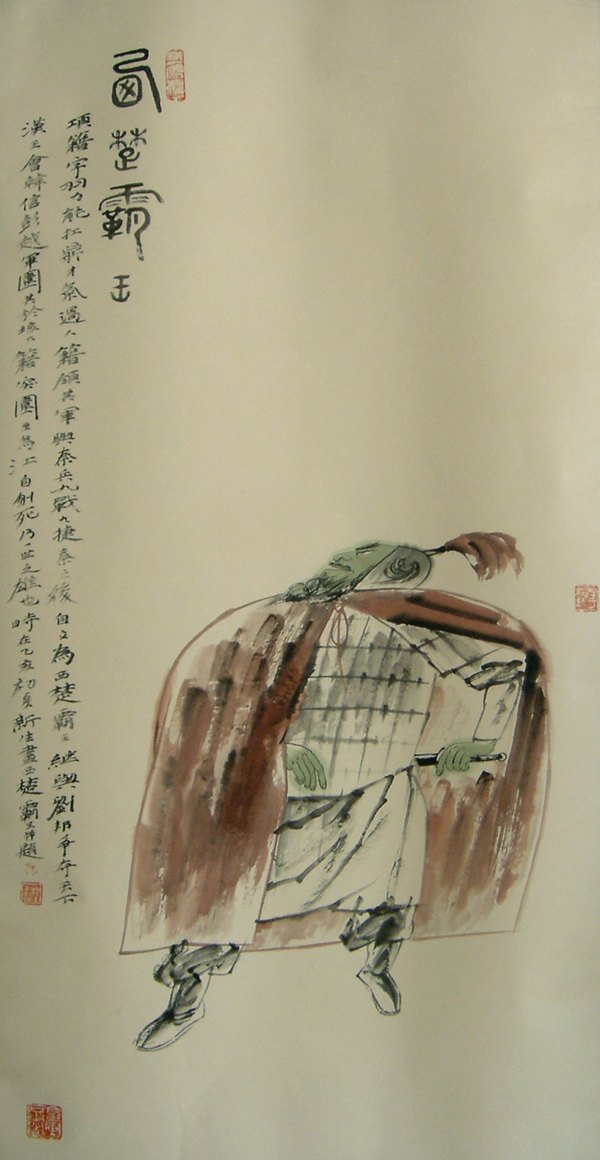 西楚霸王
項籍字羽力能扛鼎才氣過人籍領其軍與秦兵九戰九捷秦亡後自立為西楚霸王繼與劉邦爭夺天下
漢王會韓信彭越軍圍其於垓下籍突圍至烏江自刎死乃一世之雄也時在乙亥初夏新生畫西楚霸王并題